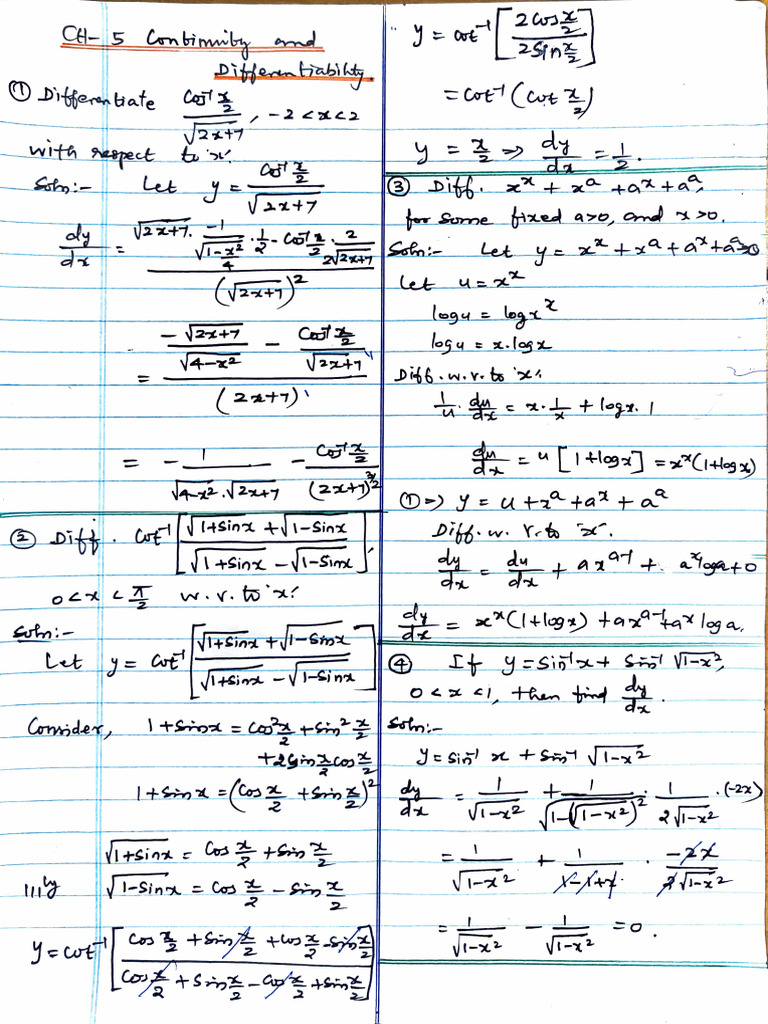 CH-5 Continuity and
Differentiability.
① Differentiate (Cos⁻¹ x/2)/√(2x+7), -2 < x < 2
with respect to 'x'.
Soln:- Let y = (Cos⁻¹ x/2)/√(2x+7)
dy/dx = [√(2x+7) · (-1)/√(1-x²/4) · 1/2 - Cos⁻¹ x/2 · 2/(2√(2x+7))]/(√(2x+7))²
= [-√(2x+7)/√(4-x²) - (Cos⁻¹ x/2)/√(2x+7)]/(2x+7)
= - 1/(√(4-x²) · √(2x+7)) - (Cos⁻¹ x/2)/(2x+7)^(3/2)
② Diff. Cot⁻¹ [(√(1+sinx) + √(1-Sinx))/(√(1+Sinx) - √(1-Sinx))],
0 < x < π/2 w.r.to 'x'.
Soln:-
Let y = Cot⁻¹ [(√(1+Sinx) + √(1-Sinx))/(√(1+Sinx) - √(1-Sinx))]
Consider, 1+Sinx = Cos² x/2 + Sin² x/2
+ 2Sin x/2 cos x/2
1+Sinx = (Cos x/2 + Sin x/2)²
√(1+Sinx) = Cos x/2 + Sin x/2
|||ly √(1-Sinx) = Cos x/2 - Sin x/2
y = cot⁻¹ [(Cos x/2 + Sin x/2 + Cos x/2 - Sin x/2)/(Cos x/2 + Sin x/2 - Cos x/2 + Sin x/2)]
y = cot⁻¹ [(2Cos x/2)/(2Sin x/2)]
= Cot⁻¹ (Cot x/2)
y = x/2 ⇒ dy/dx = 1/2.
③ Diff. xˣ + xᵃ + aˣ + aᵃ,
for some fixed a>0, and x>0.
Soln:- Let y = xˣ + xᵃ + aˣ + aᵃ →①
Let u = xˣ
log u = log xˣ
log u = x.log x
Diff. w.r.to 'x'.
1/u · du/dx = x · 1/x + log x · 1
du/dx = u [1+log x] = xˣ(1+log x)
① ⇒ y = u + xᵃ + aˣ + aᵃ
Diff. w. r. to 'x'.
dy/dx = du/dx + a xᵃ⁻¹ + aˣ log a + 0
dy/dx = xˣ(1+log x) + axᵃ⁻¹ + aˣ log a.
④ If y = Sin⁻¹x + Sin⁻¹ √(1-x²),
0 < x < 1, then find dy/dx.
Soln:-
y = Sin⁻¹ x + Sin⁻¹ √(1-x²)
dy/dx = 1/√(1-x²) + 1/√(1-(√(1-x²))²) · 1/(2√(1-x²)) · (-2x)
= 1/√(1-x²) + 1/√(1-1+x²) · (-2x)/(2√(1-x²))
= 1/√(1-x²) - 1/√(1-x²) = 0.